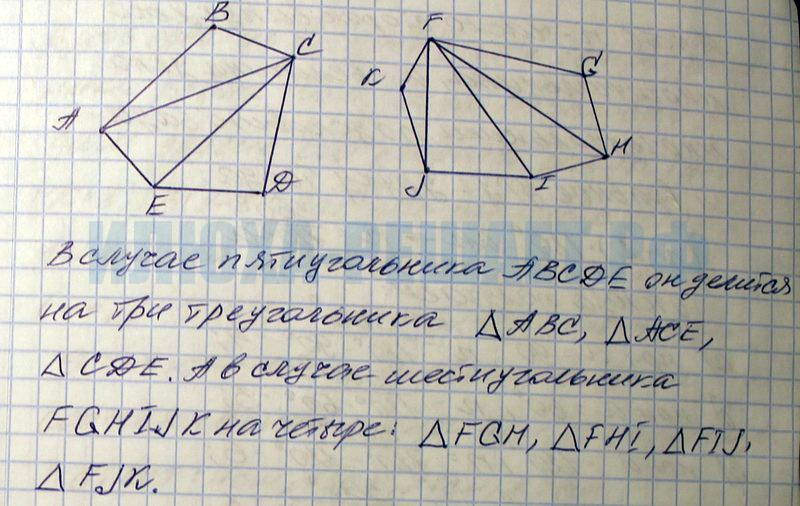 B
C
A
E
D
F
G
K
H
J
I
В случае пятиугольника ABCDE он делится
на три треугольника △ABC, △ACE,
△CDE. А в случае шестиугольника
FGHIJK на четыре: △FGH, △FHI, △FIJ,
△FJK.